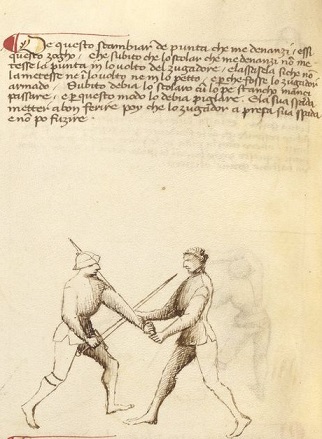 De questo scambiar de punta che me denanzi / essi
questo zogho. Che subito che lo scolar che me denanzi no me
tesse la punta in lo volto del zugadore / e lassasela siche no
la metesse ne ī lo volto ne in lo petto. e perche fosse lo zugadore
armado. Subito debia lo scolaro cū lo pe stancho inanci
passare. e per questo modo lo debia pigliare. E la sua spada
metter a bon ferire poy che lo zugador a presa sua spada
e no po fuzire.